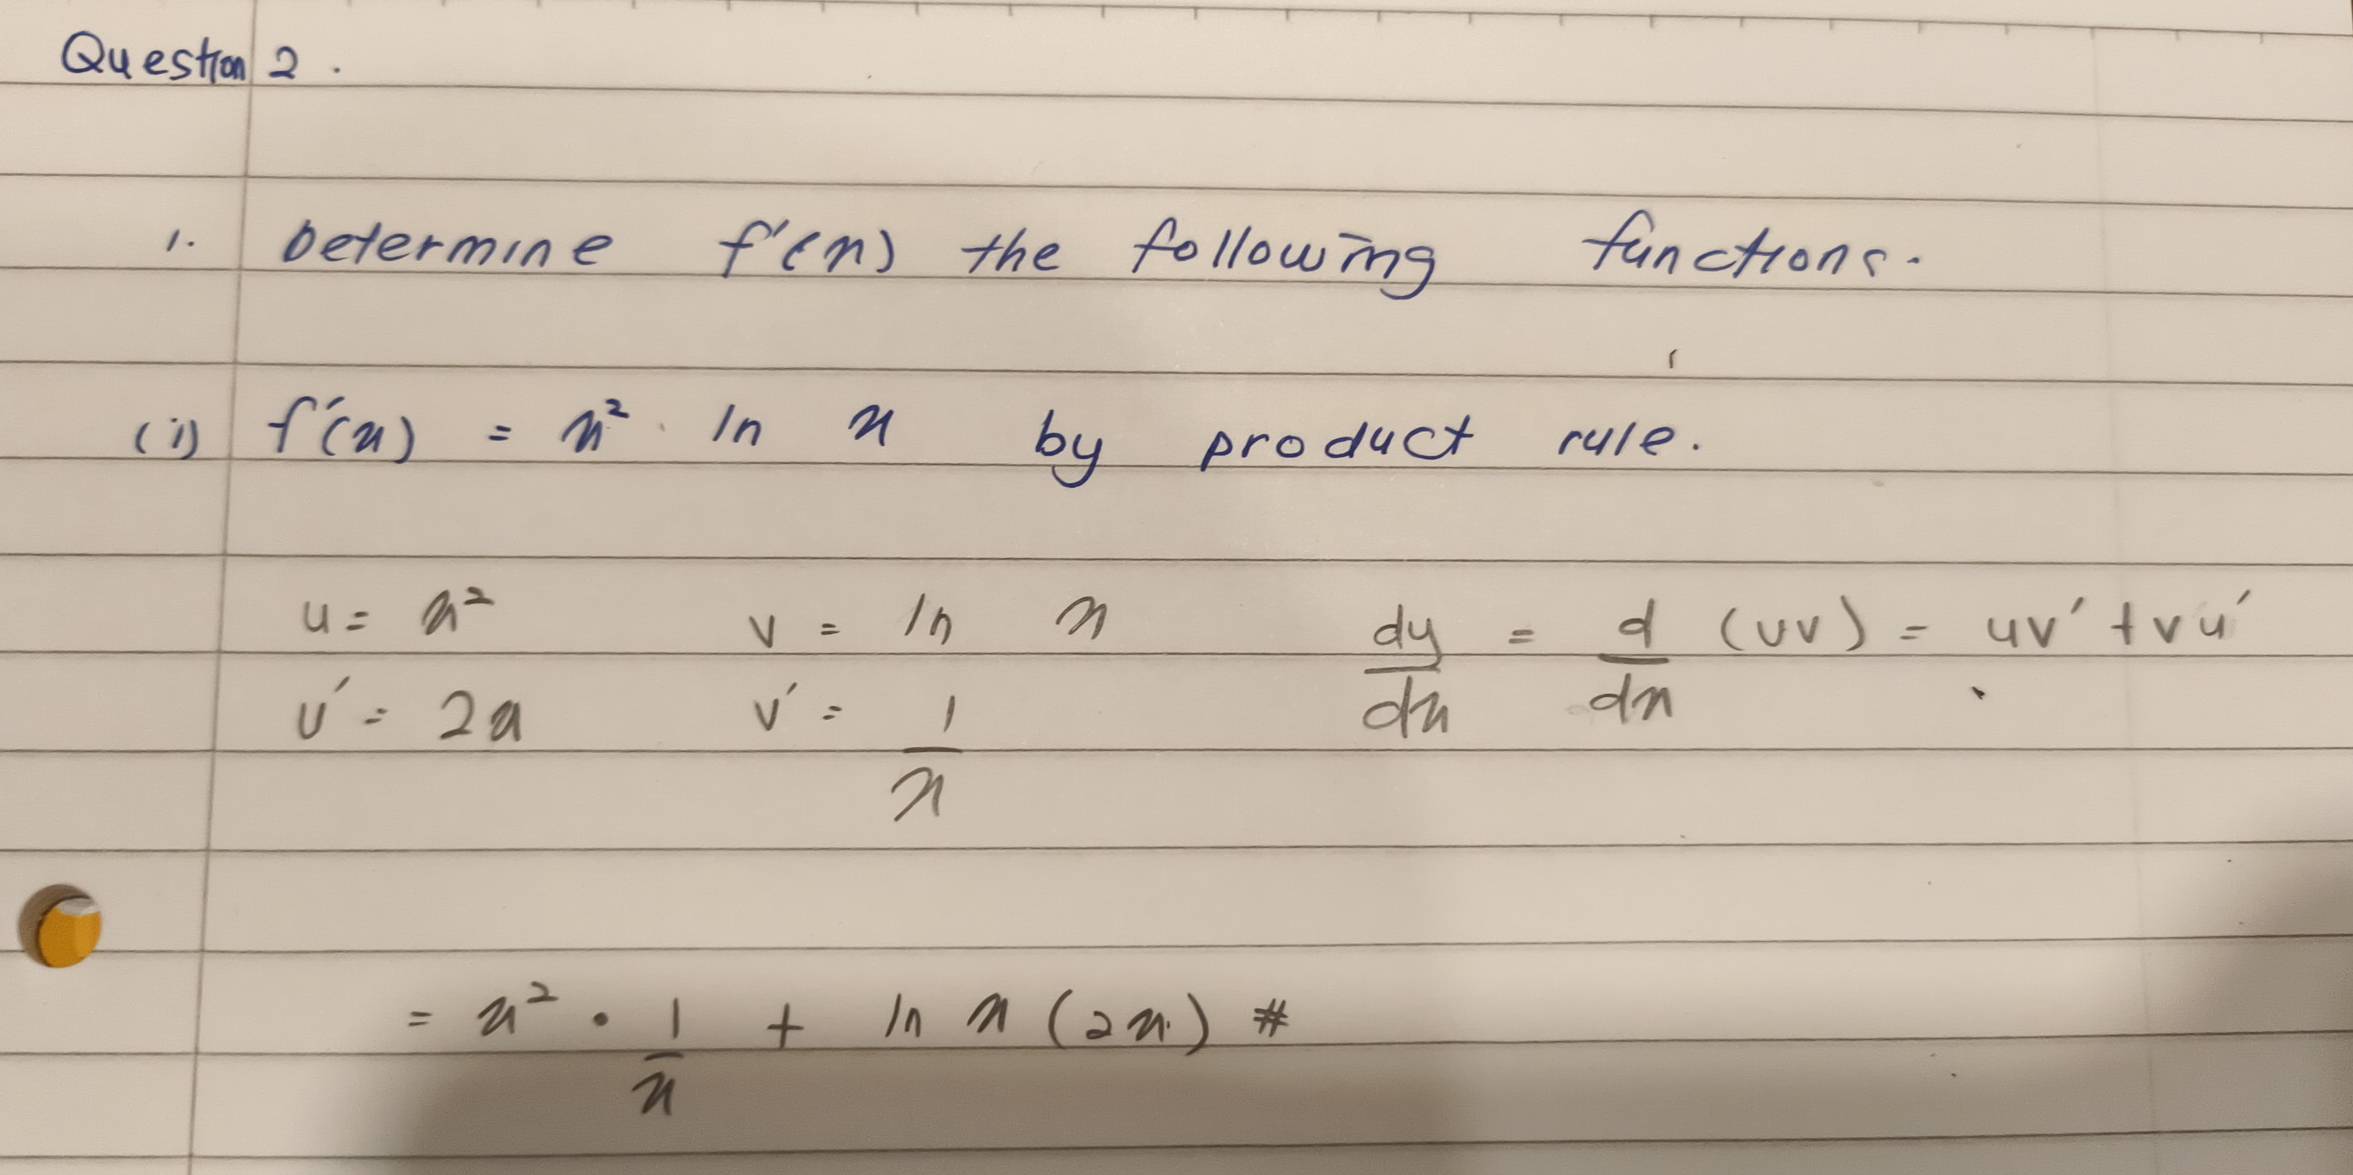 Question 2.
1. Determine f'(x) the following functions.
(i) f'(x) = x² · ln x by product rule.
u = x² v = ln x dy/dx = d/dx (uv) = uv' + vu'
u' = 2x v' = 1/x
= x² · 1/x + ln x (2x) #